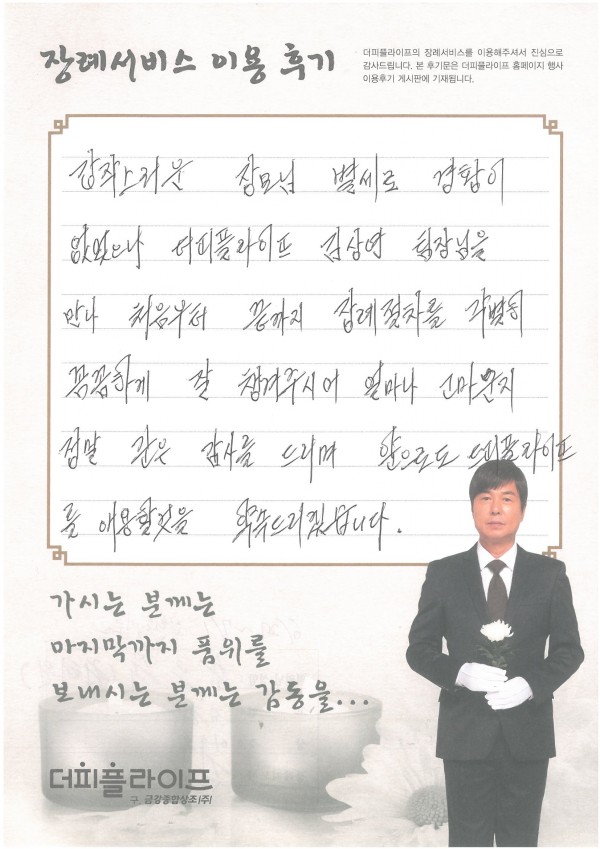 장례서비스 이용 후기
더피플라이프의 장례서비스를 이용해주셔서 진심으로
감사드립니다. 본 후기문은 더피플라이프 홈페이지 행사
이용후기 게시판에 기재됩니다.
갑작스러운 장모님 별세로 경황이
없었으나 더피플라이프 김상연 팀장님을
만나 처음부터 끝까지 장례절차를 각별히
꼼꼼하게 잘 챙겨주시어 얼마나 고마운지
정말 깊은 감사를 드리며 앞으로도 더피플라이프
를 애용할것을 약속드리겠습니다.
가시는 분께는
마지막까지 품위를
보내시는 분께는 감동을...
더피플라이프
구. 금강종합상조(주)